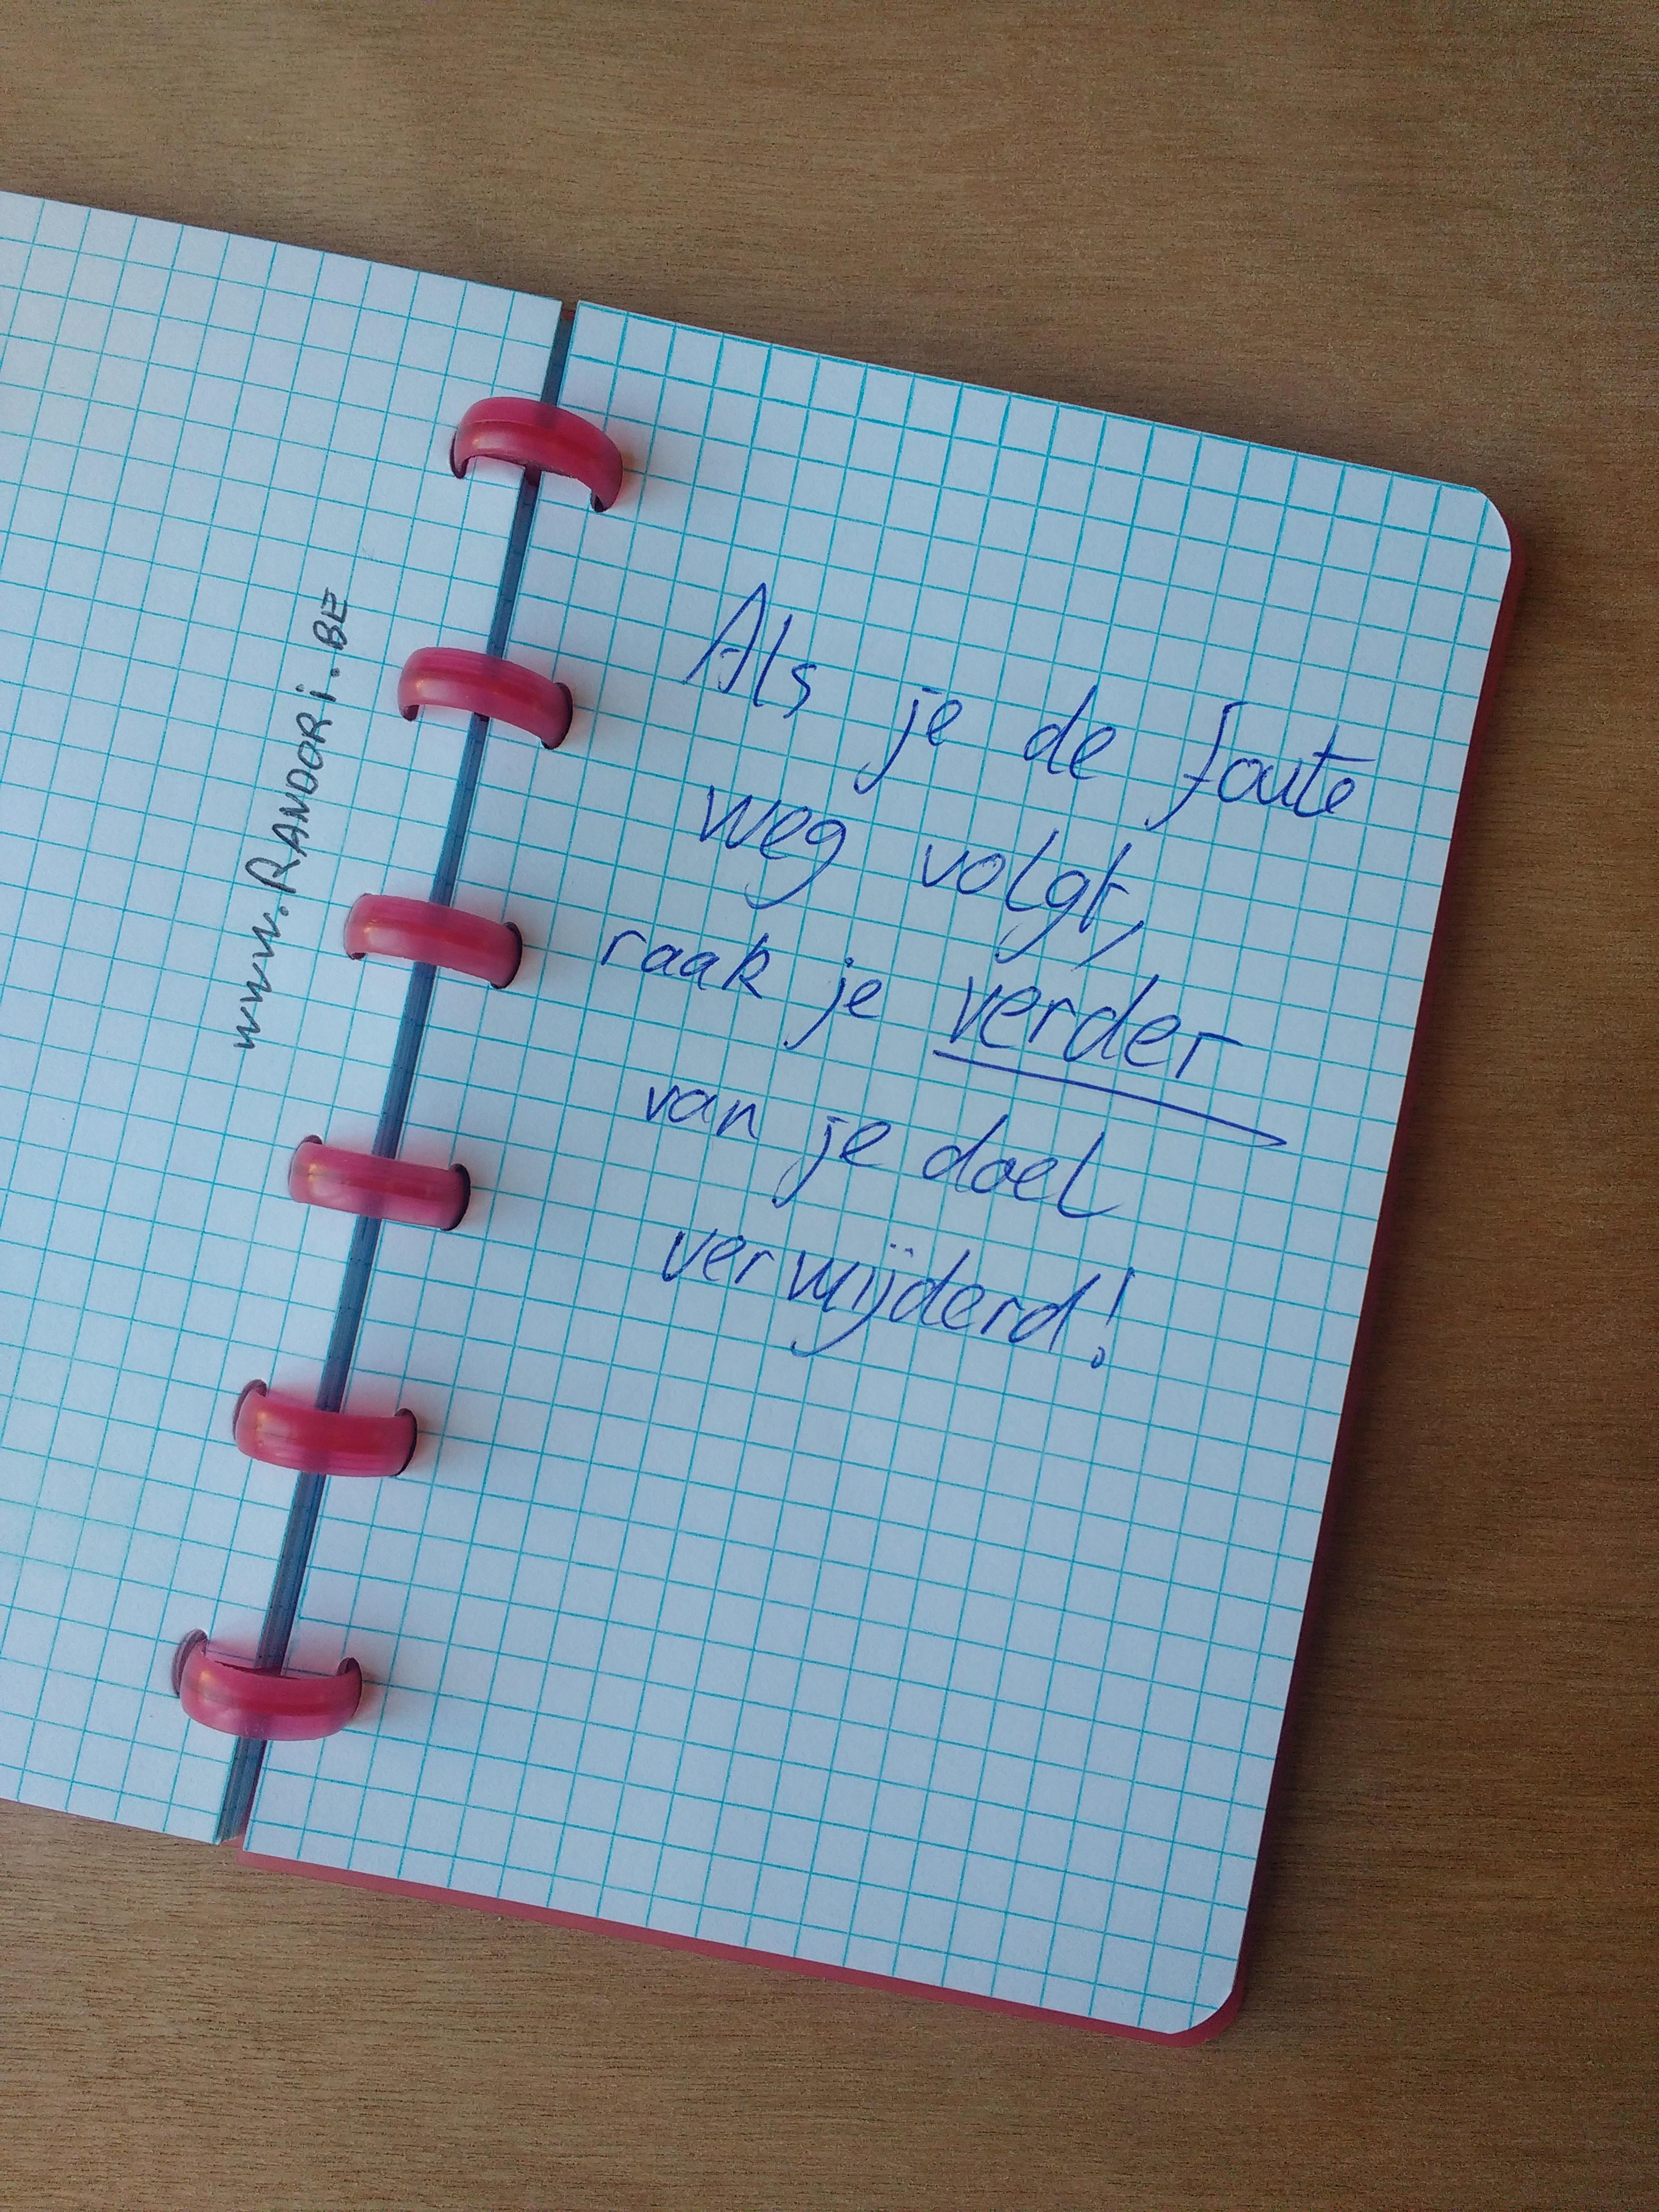 www.RANDORi.BE
Als je de foute
weg volgt,
raak je verder
van je doel
verwijderd!